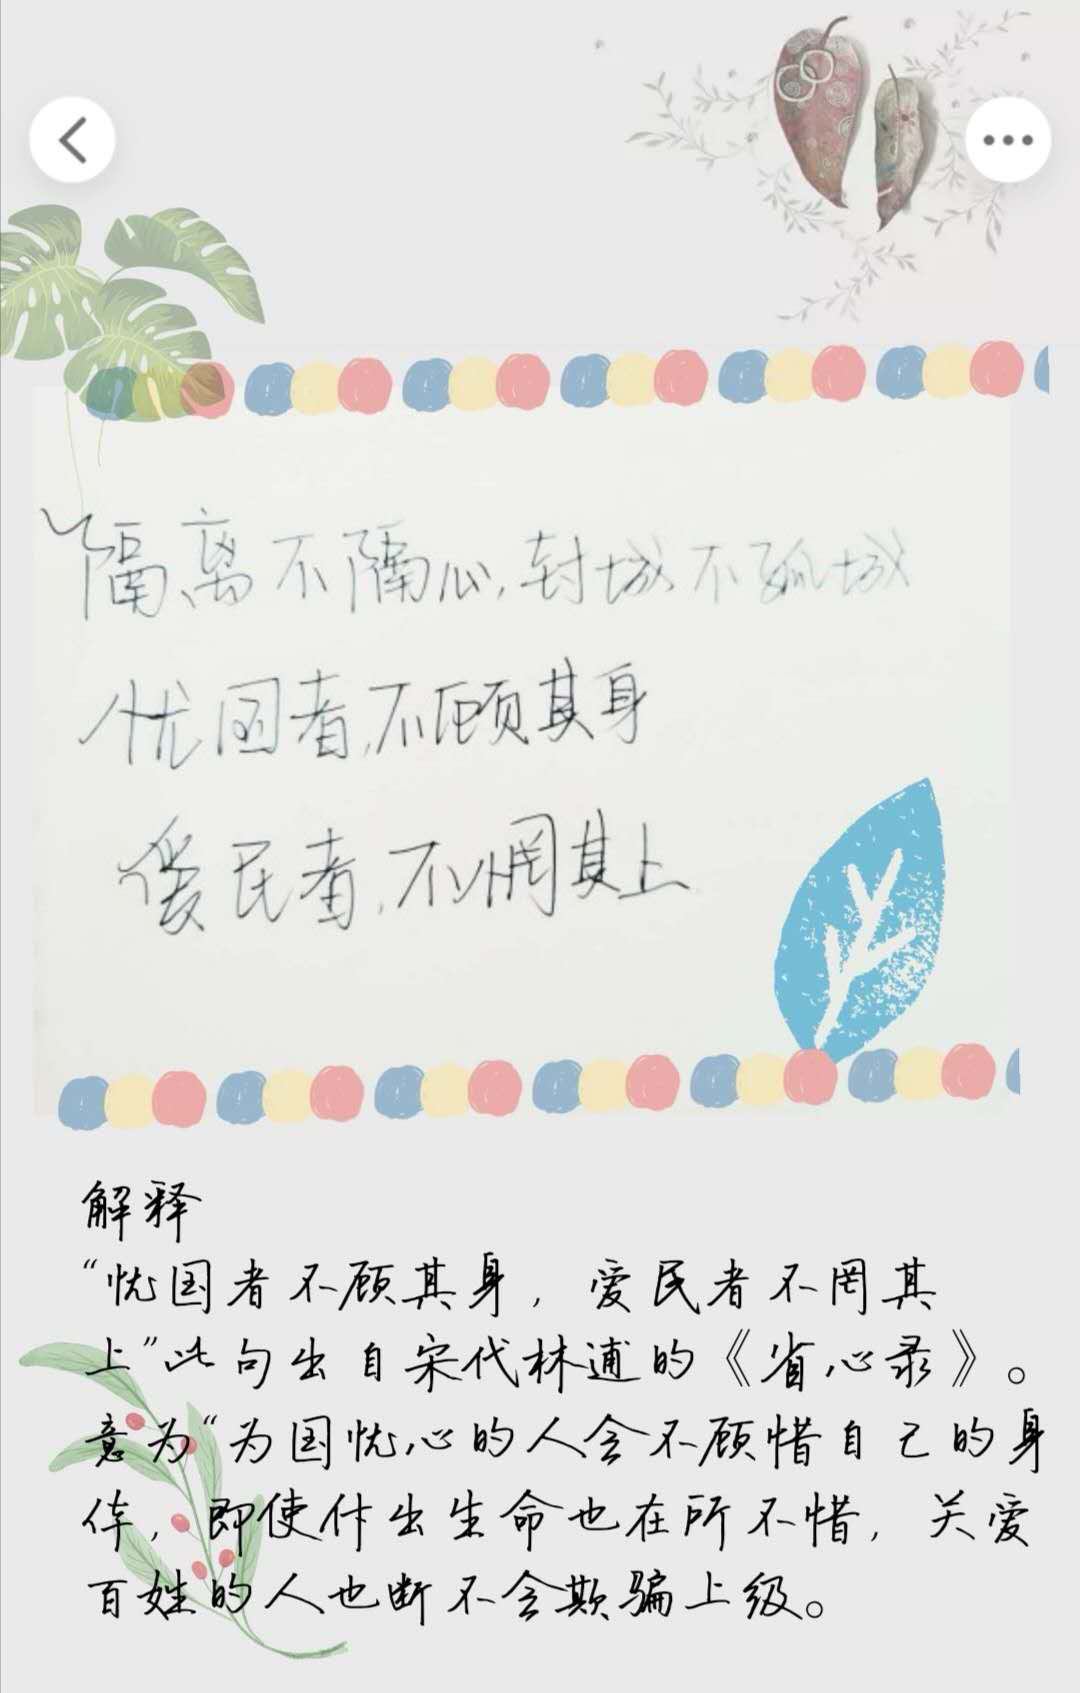 隔离不隔心,封城不孤城
忧国者,不顾其身
爱民者,不惘其上
解释
“忧国者不顾其身，爱民者不罔其
上”此句出自宋代林逋的《省心录》。
意为“为国忧心的人会不顾惜自己的身
体，即使付出生命也在所不惜，关爱
百姓的人也断不会欺骗上级。